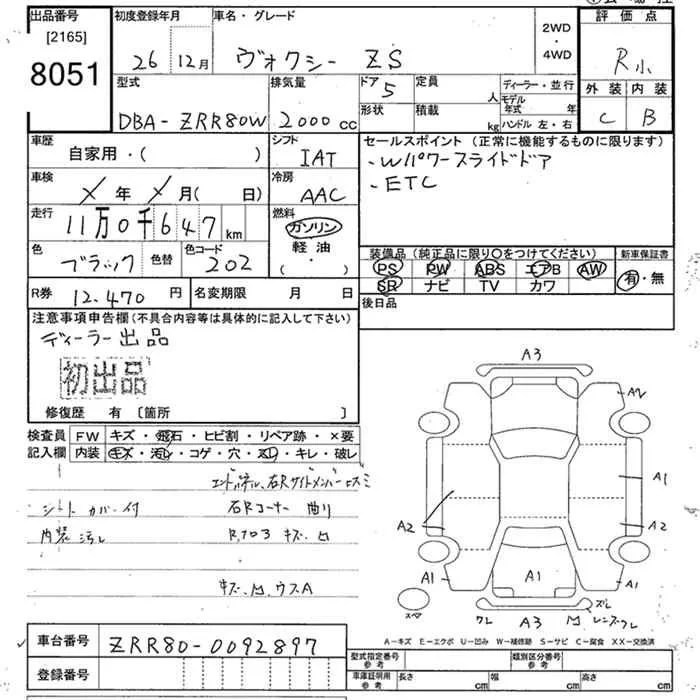 出品番号 初度登録年月 車名・グレード 評価点
[2165] 2WD
8051 26 12月 ヴォクシー ZS ・ R小
4WD
外装 内装
型式 排気量 ドア 5 定員 人 ディーラー・並行
モデル年式 年 C B
DBA-ZRR80W 2000cc 形状 積載 kg ハンドル 左・右
車歴 シフト セールスポイント (正常に機能するものに限ります)
自家用・( ) IAT ・Wパワースライドドア
車検 冷房 ・ETC
× 年 × 月( 日) AAC
走行 燃料
11万0千647km ガソリン
色 色替 色コード 軽油 装備品 (純正品に限り○をつけてください) 新車保証書
ブラック 202 ( ・ ) PS PW ABS エアB AW 有・無
SR ナビ TV カワ
R券 12,470円 名変期限 月 日 後日品
注意事項申告欄(不具合内容等は具体的に記入して下さい)
ディーラー出品
初出品
修復歴 有 [箇所 ]
検査員 FW キズ・飛石・ヒビ割・リペア跡・×要
記入欄 内装 キズ・汚レ・コゲ・穴・スレ・キレ・破レ
シートカバー付 右Rコーナー 曲り
内装汚レ キズ 凹
キズ、凹、ウスA
A3
A2
A1
A2 A2
A1 A1 A1
スペア ワレ A3 凹 ズレ
レンズワレ
A-キズ E-エクボ U-凹み W-補修跡 S-サビ C-腐食 XX-交換済
車台番号 ZRR80-0092897 型式指定番号 参考 類別区分番号 参考
登録番号 車庫証明用 参考 長さ cm 幅 cm 高さ cm